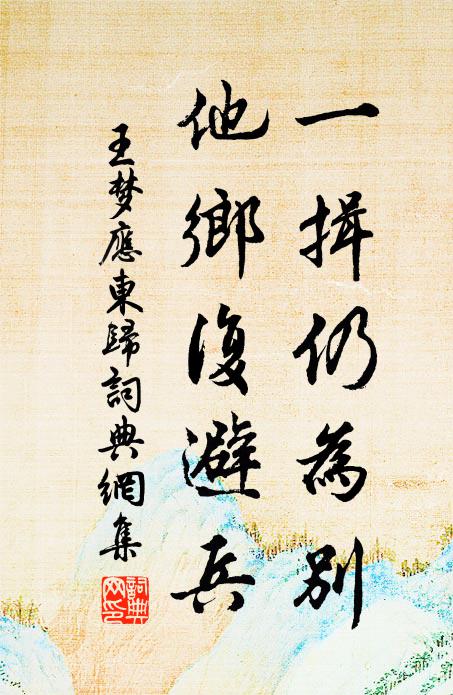 一揖仍為別
他鄉復避兵
王梦應東歸詞典網集
詞典
网印